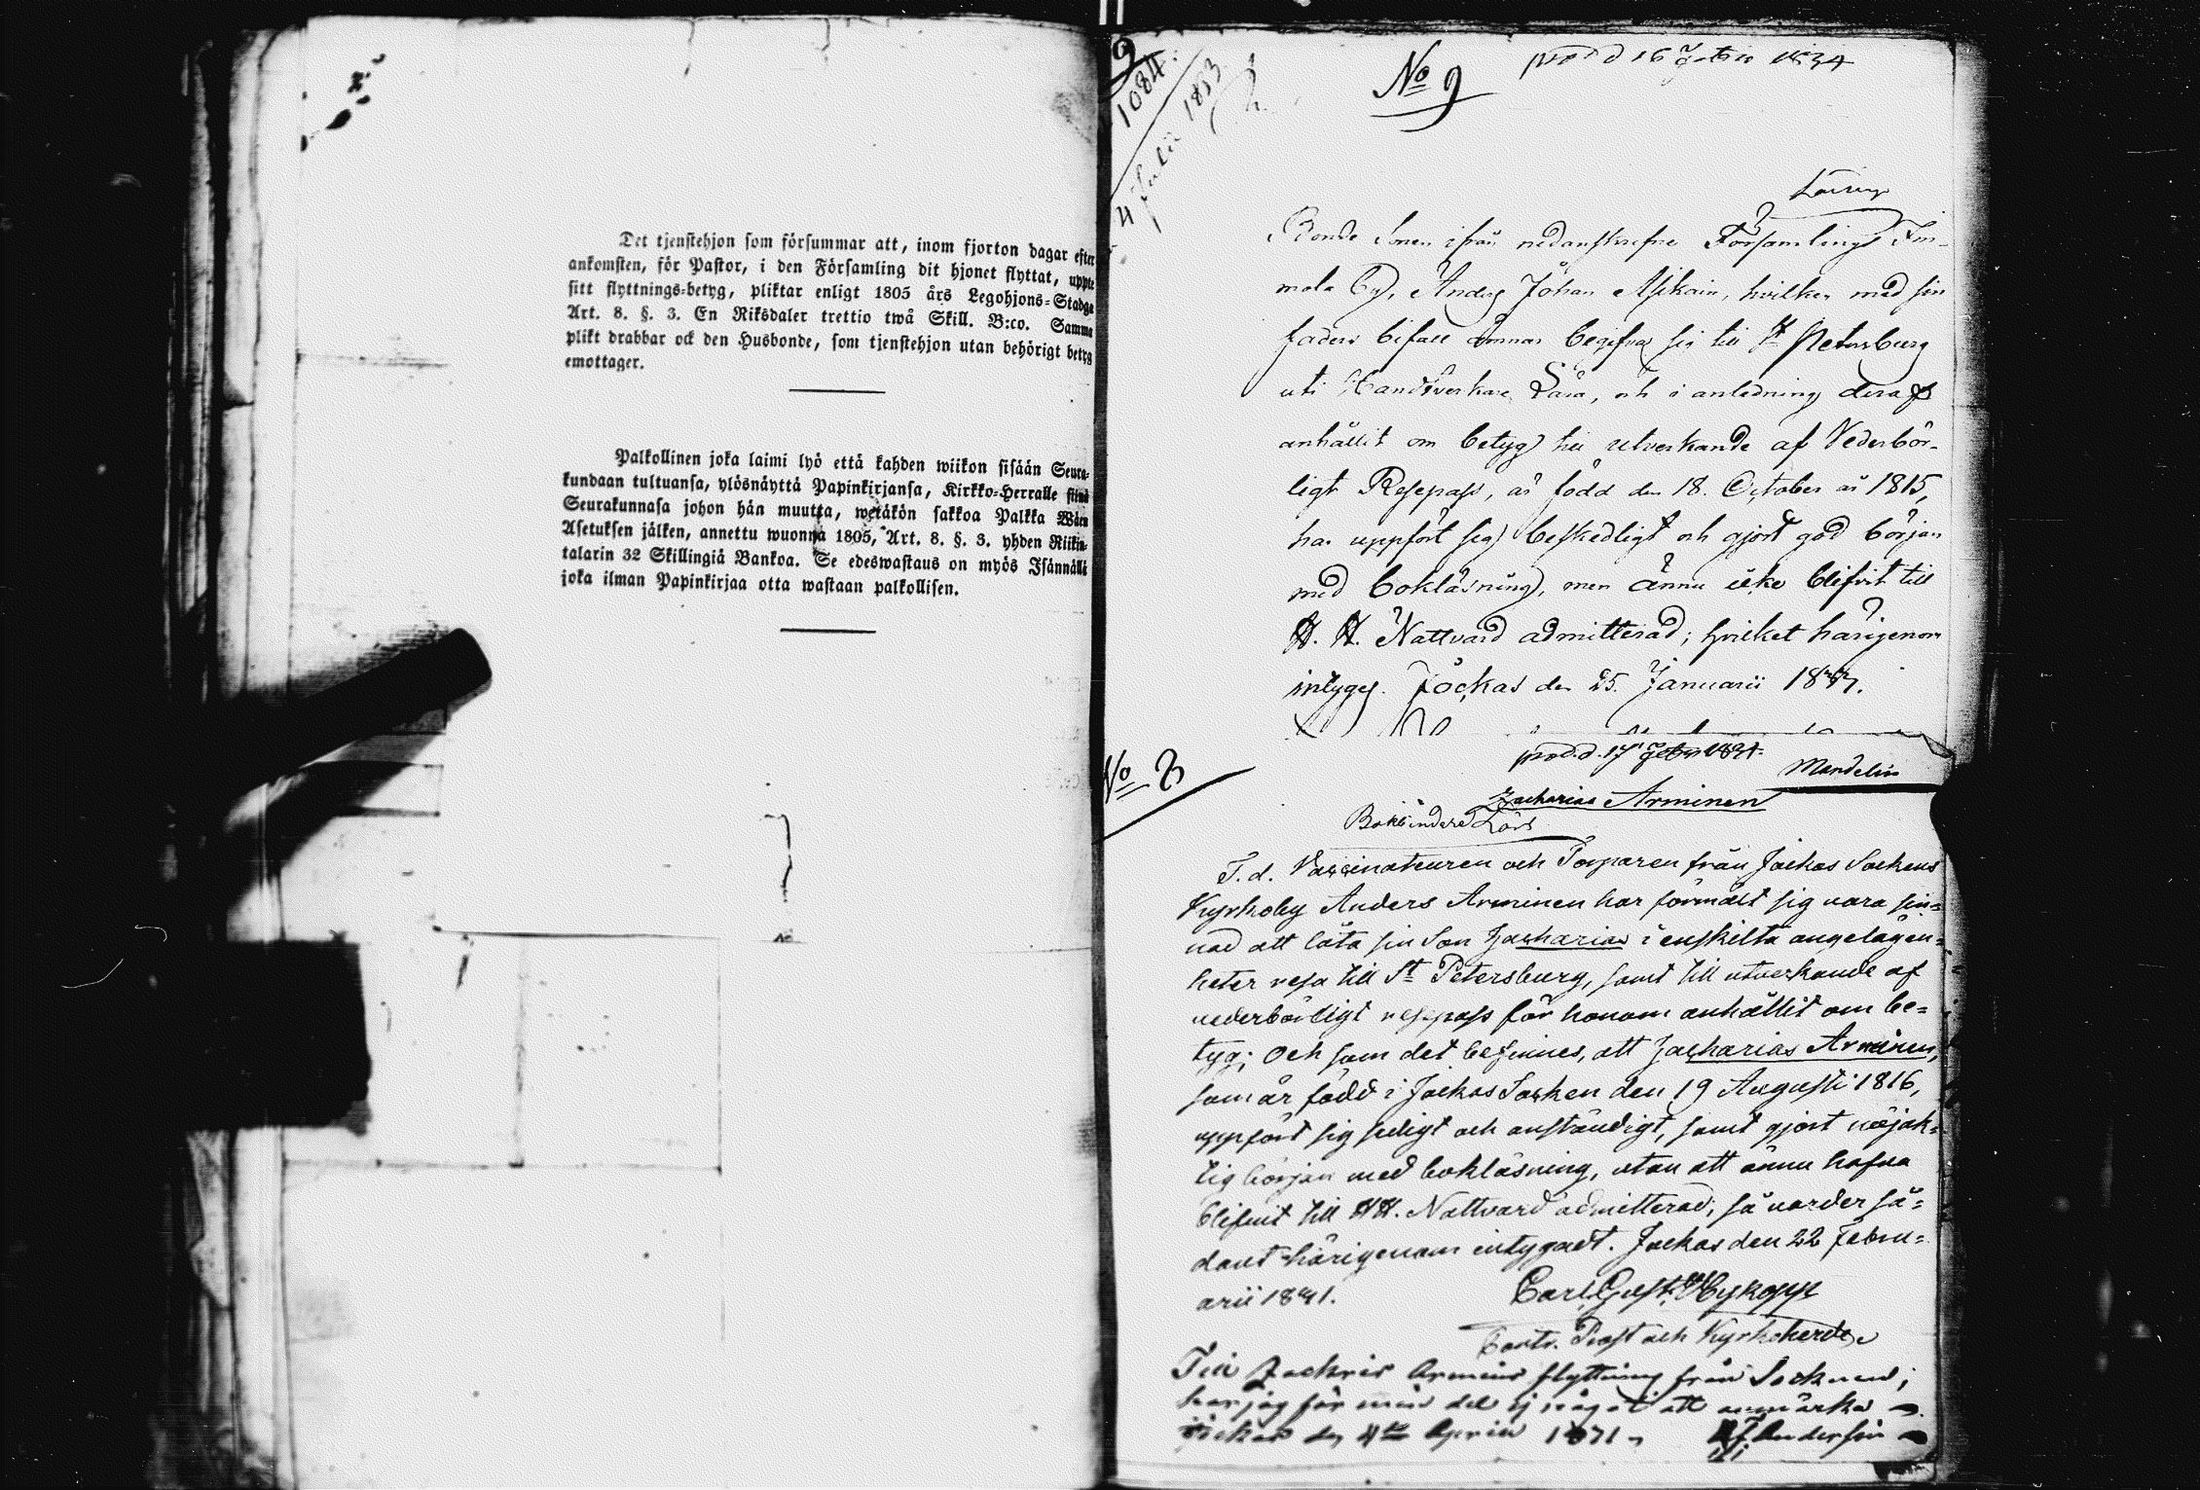 Det tjenstehjon som försummar att, inom fjorton dagar efter
ankomsten, för Pastor, i den Församling dit hjonet flyttat, uppte
sitt flyttnings-betyg, pliktar enligt 1805 års Legohjons-Stadga
Art. 8. §. 3. En Riksdaler trettio twå Skill. B:co. Samma
plikt drabbar ock den Husbonde, som tjenstehjon utan behörigt betyg
emottager.
Palkollinen joka laimi lyö että kahden wiikon sisään Seura-
kundaan tultuansa, ylösnäyttä Papinkirjansa, Kirkko-Herralle siinä
Seurakunnasa johon hän muutta, wetäkön sakkoa Palkka Wäen
Asetuksen jälken, annettu wuonna 1805, Art. 8. §. 3. yhden Riikin-
talarin 32 Skillingiä Bankoa. Se edeswastaus on myös Isännällä
joka ilman Papinkirjaa otta wastaan palkollisen.
9
1084.
4 Julii 1833
No 9
prod d 16 1834
Bonde Sonen ifrån nedanskrefne Församlings Im-
mola By, Anders Johan Asikain, hvilken med sin
faders bifall ämnar begifva sig till St Petersburg
uti Handtverkare Lära, och i anledning deraf
anhållit om betyg till utverkande af Vederbör-
ligt Resepass, är född den 18. October år 1815,
har uppfört sig beskedligt och gjort god början
med bokläsning, men ännu icke blifvit till
H. H. Nattvard admitterad; hvilket härigenom
intygas. Jockas den 25. Januarii
No 3
prod. d. 17
Mandelin
Zacharias Arminen
Bokbindare Lärl
F. d. Vaccinateuren och Torparen från Jockas Sockens
Kyrkoby Anders Arminen har förmält sig vara sin=
nad att låta sin Son Zacharias i enskilta angelägen=
heter resa till St Petersburg, samt till utverkande af
vederbörligt resepass för honom anhållit om be=
tyg; Och som det befinnes, att Zacharias Arminen,
som är född i Jockas Socken den 19 Augusti 1816,
uppfört sig sedigt och anständigt, samt gjort nöjak=
tig början med bokläsning, utan att ännu hafva
blifvit till HH. Nattvard admitterad; så varder så=
dant härigenom intygadt. Jockas den 22 Febru=
arii 1831.
Carl Gust. Wykopp
Contr. Prost och Kyrkoherde
Zachris Armins flyttning från Socknen;
har jag för min del ej något att anmärka
Jockas den 4de Aprill 1831